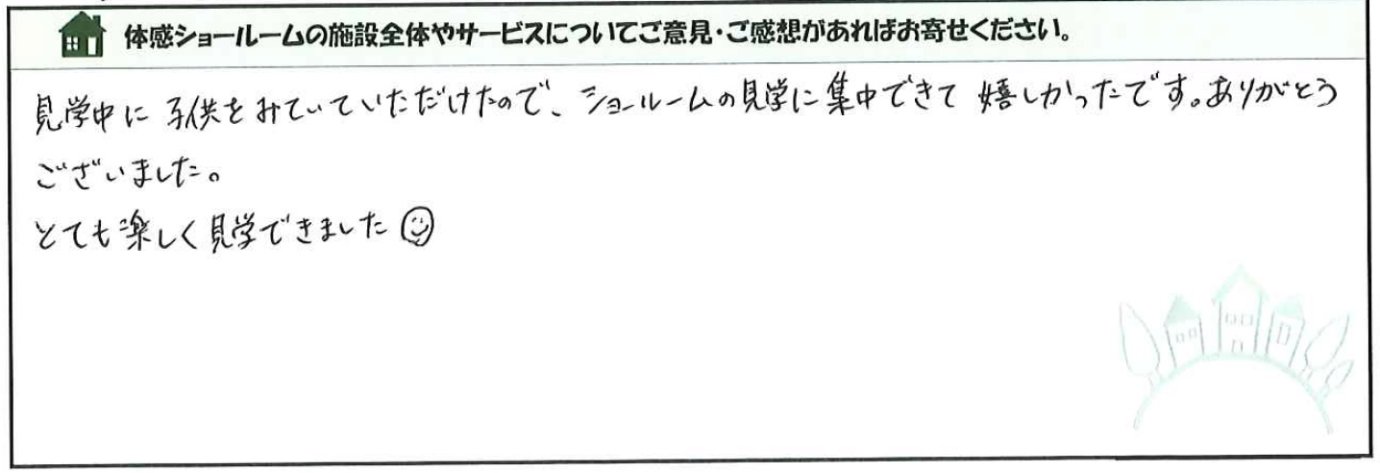 体感ショールームの施設全体やサービスについてご意見・ご感想があればお寄せください。
見学中に子供をみていていただけたので、ショールームの見学に集中できて嬉しかったです。ありがとう
ございました。
とても楽しく見学できました☺